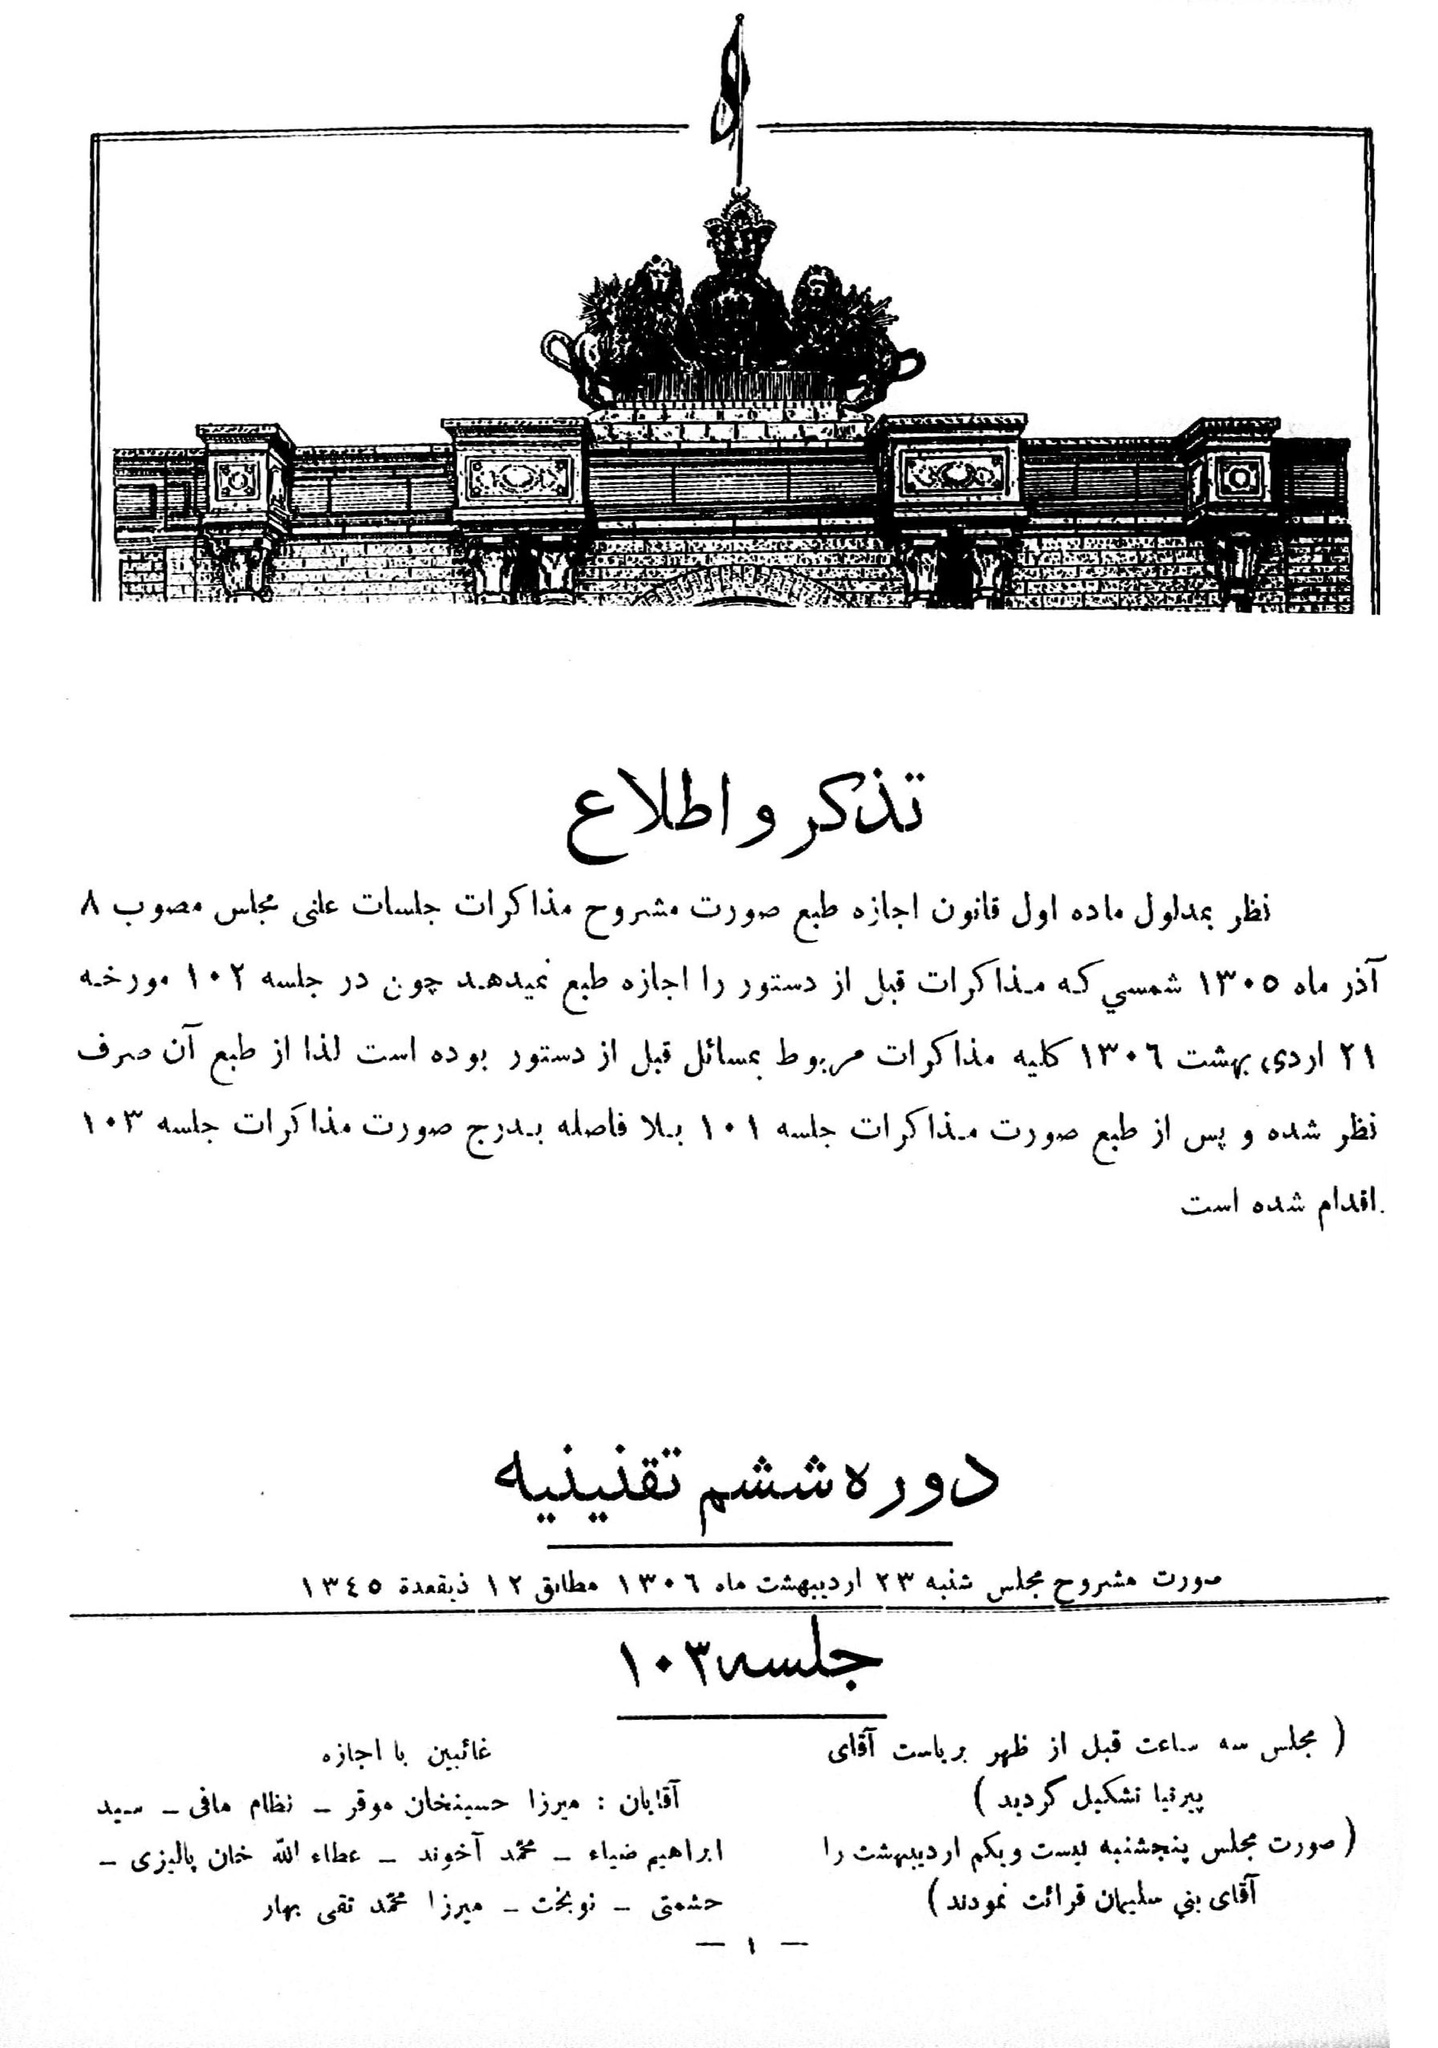 تذکر و اطلاع
نظر بمدلول ماده اول قانون اجازه طبع صورت مشروح مذاکرات جلسات علنی مجلس مصوب ۸
آذر ماه ۱۳۰۵ شمسي که مذاکرات قبل از دستور را اجازه طبع نمیدهد چون در جلسه ۱۰۲ مورخه
۲۱ اردی بهشت ۱۳۰۶ کلیه مذاکرات مربوط بمسائل قبل از دستور بوده است لذا از طبع آن صرف
نظر شده و پس از طبع صورت مذاکرات جلسه ۱۰۱ بلا فاصله بدرج صورت مذاکرات جلسه ۱۰۳
اقدام شده است.
دوره ششم تقنینیه
صورت مشروح مجلس شنبه ۲۳ اردیبهشت ماه ۱۳۰۶ مطابق ۱۲ ذیقعدة ۱۳٤٥
جلسه ۱۰۳
( مجلس سه ساعت قبل از ظهر بریاست آقای
پیرنیا تشکیل گردید )
( صورت مجلس پنجشنبه بیست ویکم اردیبهشت را
آقای بني سلیمان قرائت نمودند )
غائبین با اجازه
آقایان : میرزا حسینخان موقر ـ نظام مافی ـ سید
ابراهیم ضیاء ـ محمد آخوند ـ عطاء الله خان پالیزی ـ
حشمتی ـ نوبخت ـ میرزا محمد تقی بهار
— ۱ —